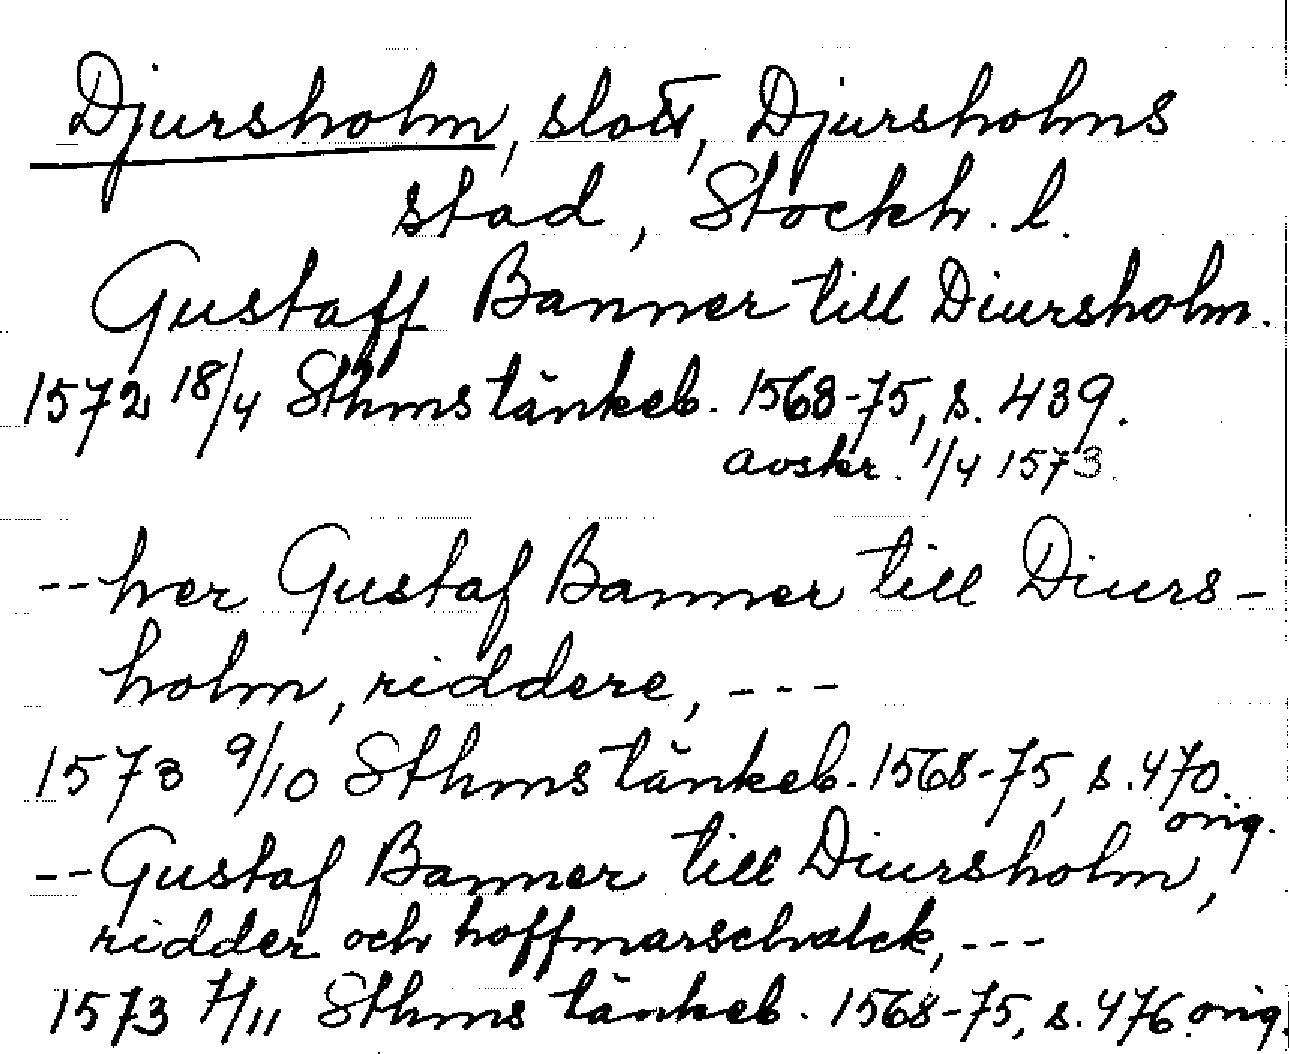 Djursholm, slott, Djursholms
stad, Stockh. l.
Gustaff Banner till Diursholm.
1572 18/4 Sthms tänkeb. 1568-75, s. 439.
avskr. 1/4 1573.
-- her Gustaf Banner till Diurs-
holm, riddere, ---
1573 9/10 Sthms tänkeb. 1568-75, s. 470.
orig.
-- Gustaf Banner till Diursholm,
ridder och hoffmarschalck, ---
1573 7/11 Sthms tänkeb. 1568-75, s. 476. orig.